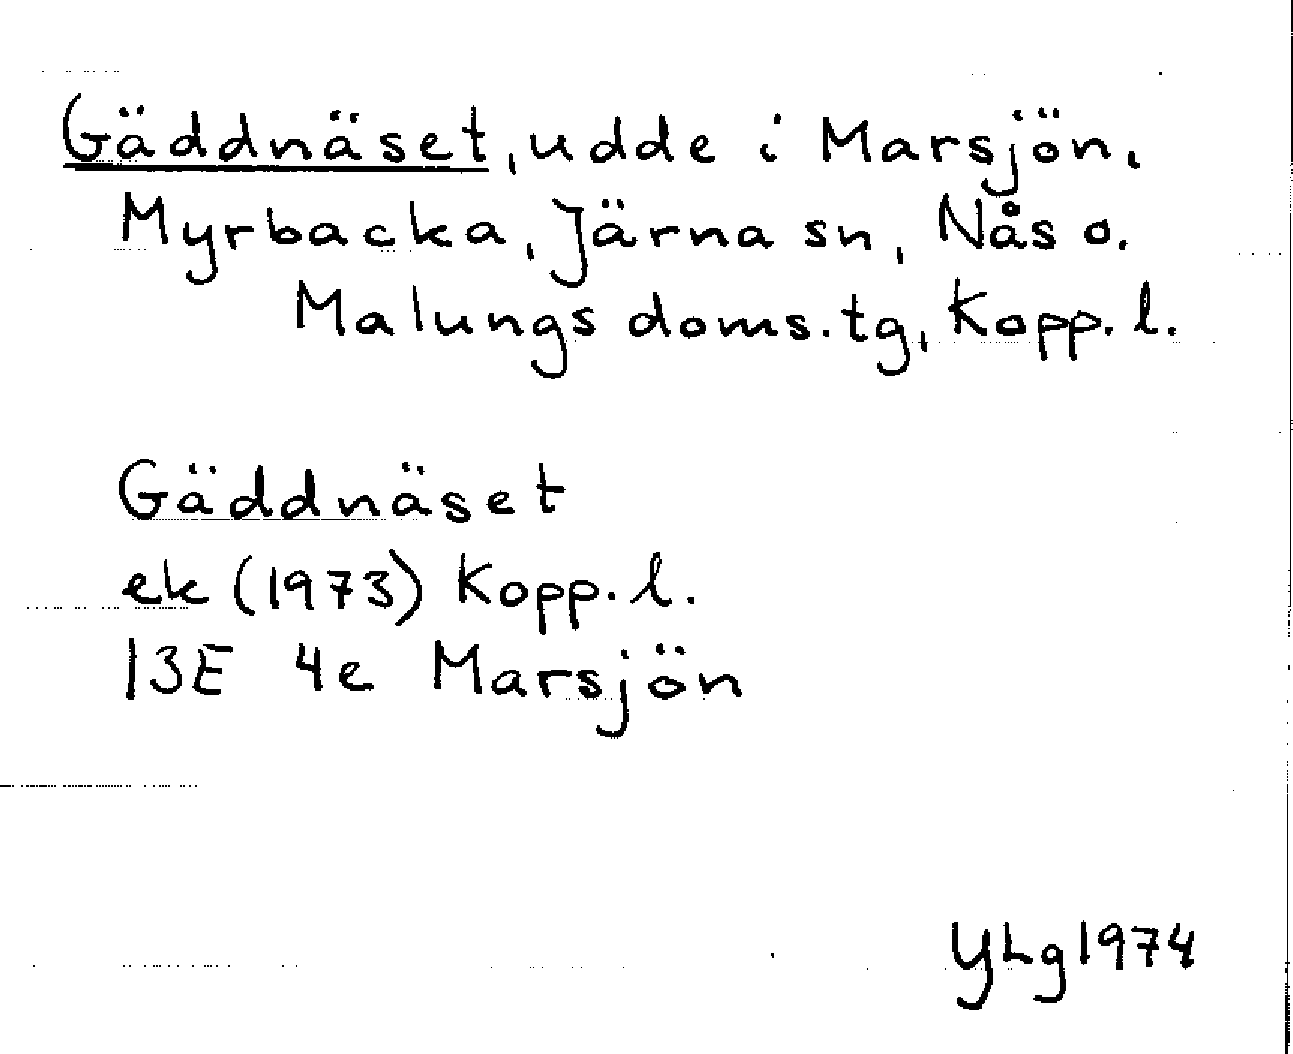 Gäddnäset, udde i Marsjön,
Myrbacka, Järna sn, Nås o.
Malungs doms.tg, Kopp. l.
Gäddnäset
ek (1973) Kopp. l.
13E 4e Marsjön
YLg 1974